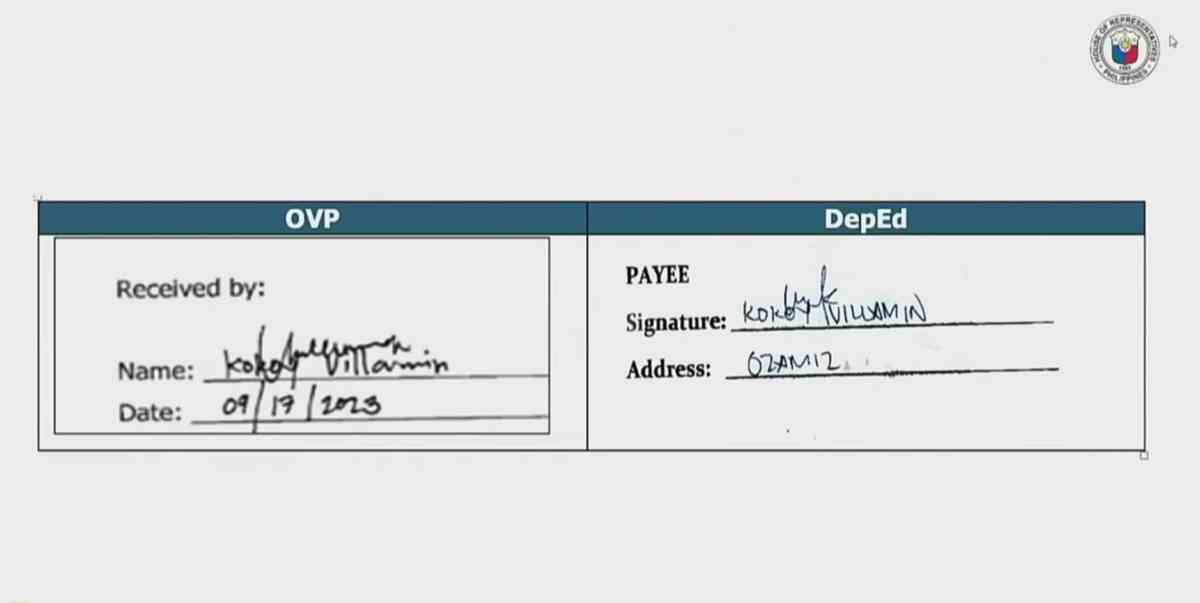 HOUSE OF REPRESENTATIVES
PHILIPPINES
OVP
DepEd
Received by:
Name: Kokoy Villamin
Date: 09/17/2023
PAYEE
Signature: KOKOY VILLAMIN
Address: OZAMIZ